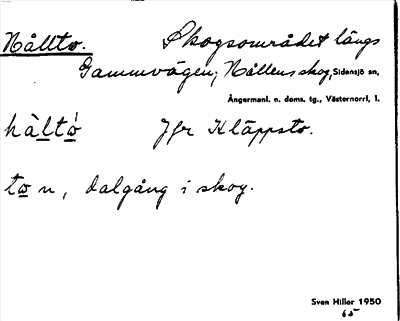 Hållto. Skogsområdet längs
Gammvägen, Hållens skog, Sidensjö sn,
Ångermanl. n. doms. tg., Västernorrl. l.
håltò Jfr Kläppsto.
to n, dalgång i skog.
Sven Hillor 1950
65